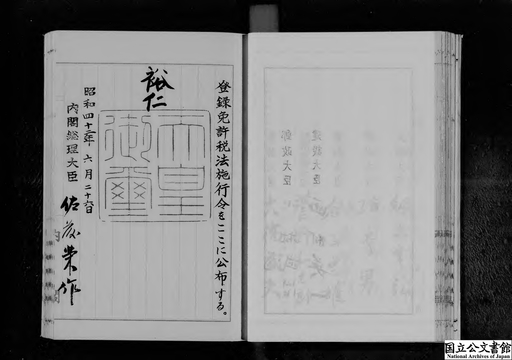 登録免許税法施行令をここに公布する。
裕仁
天皇御璽
昭和四十二年六月二十六日
内閣総理大臣 佐藤栄作
建設大臣
郵政大臣
国立公文書館
National Archives of Japan